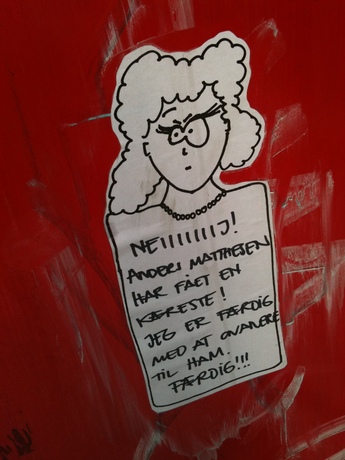 NEIIIIIIIJ!
ANDERS MATTHESEN
HAR FÅET EN
KÆRESTE!
JEG ER FÆRDIG
MED AT ONANERE
TIL HAM.
FÆRDIG!!!